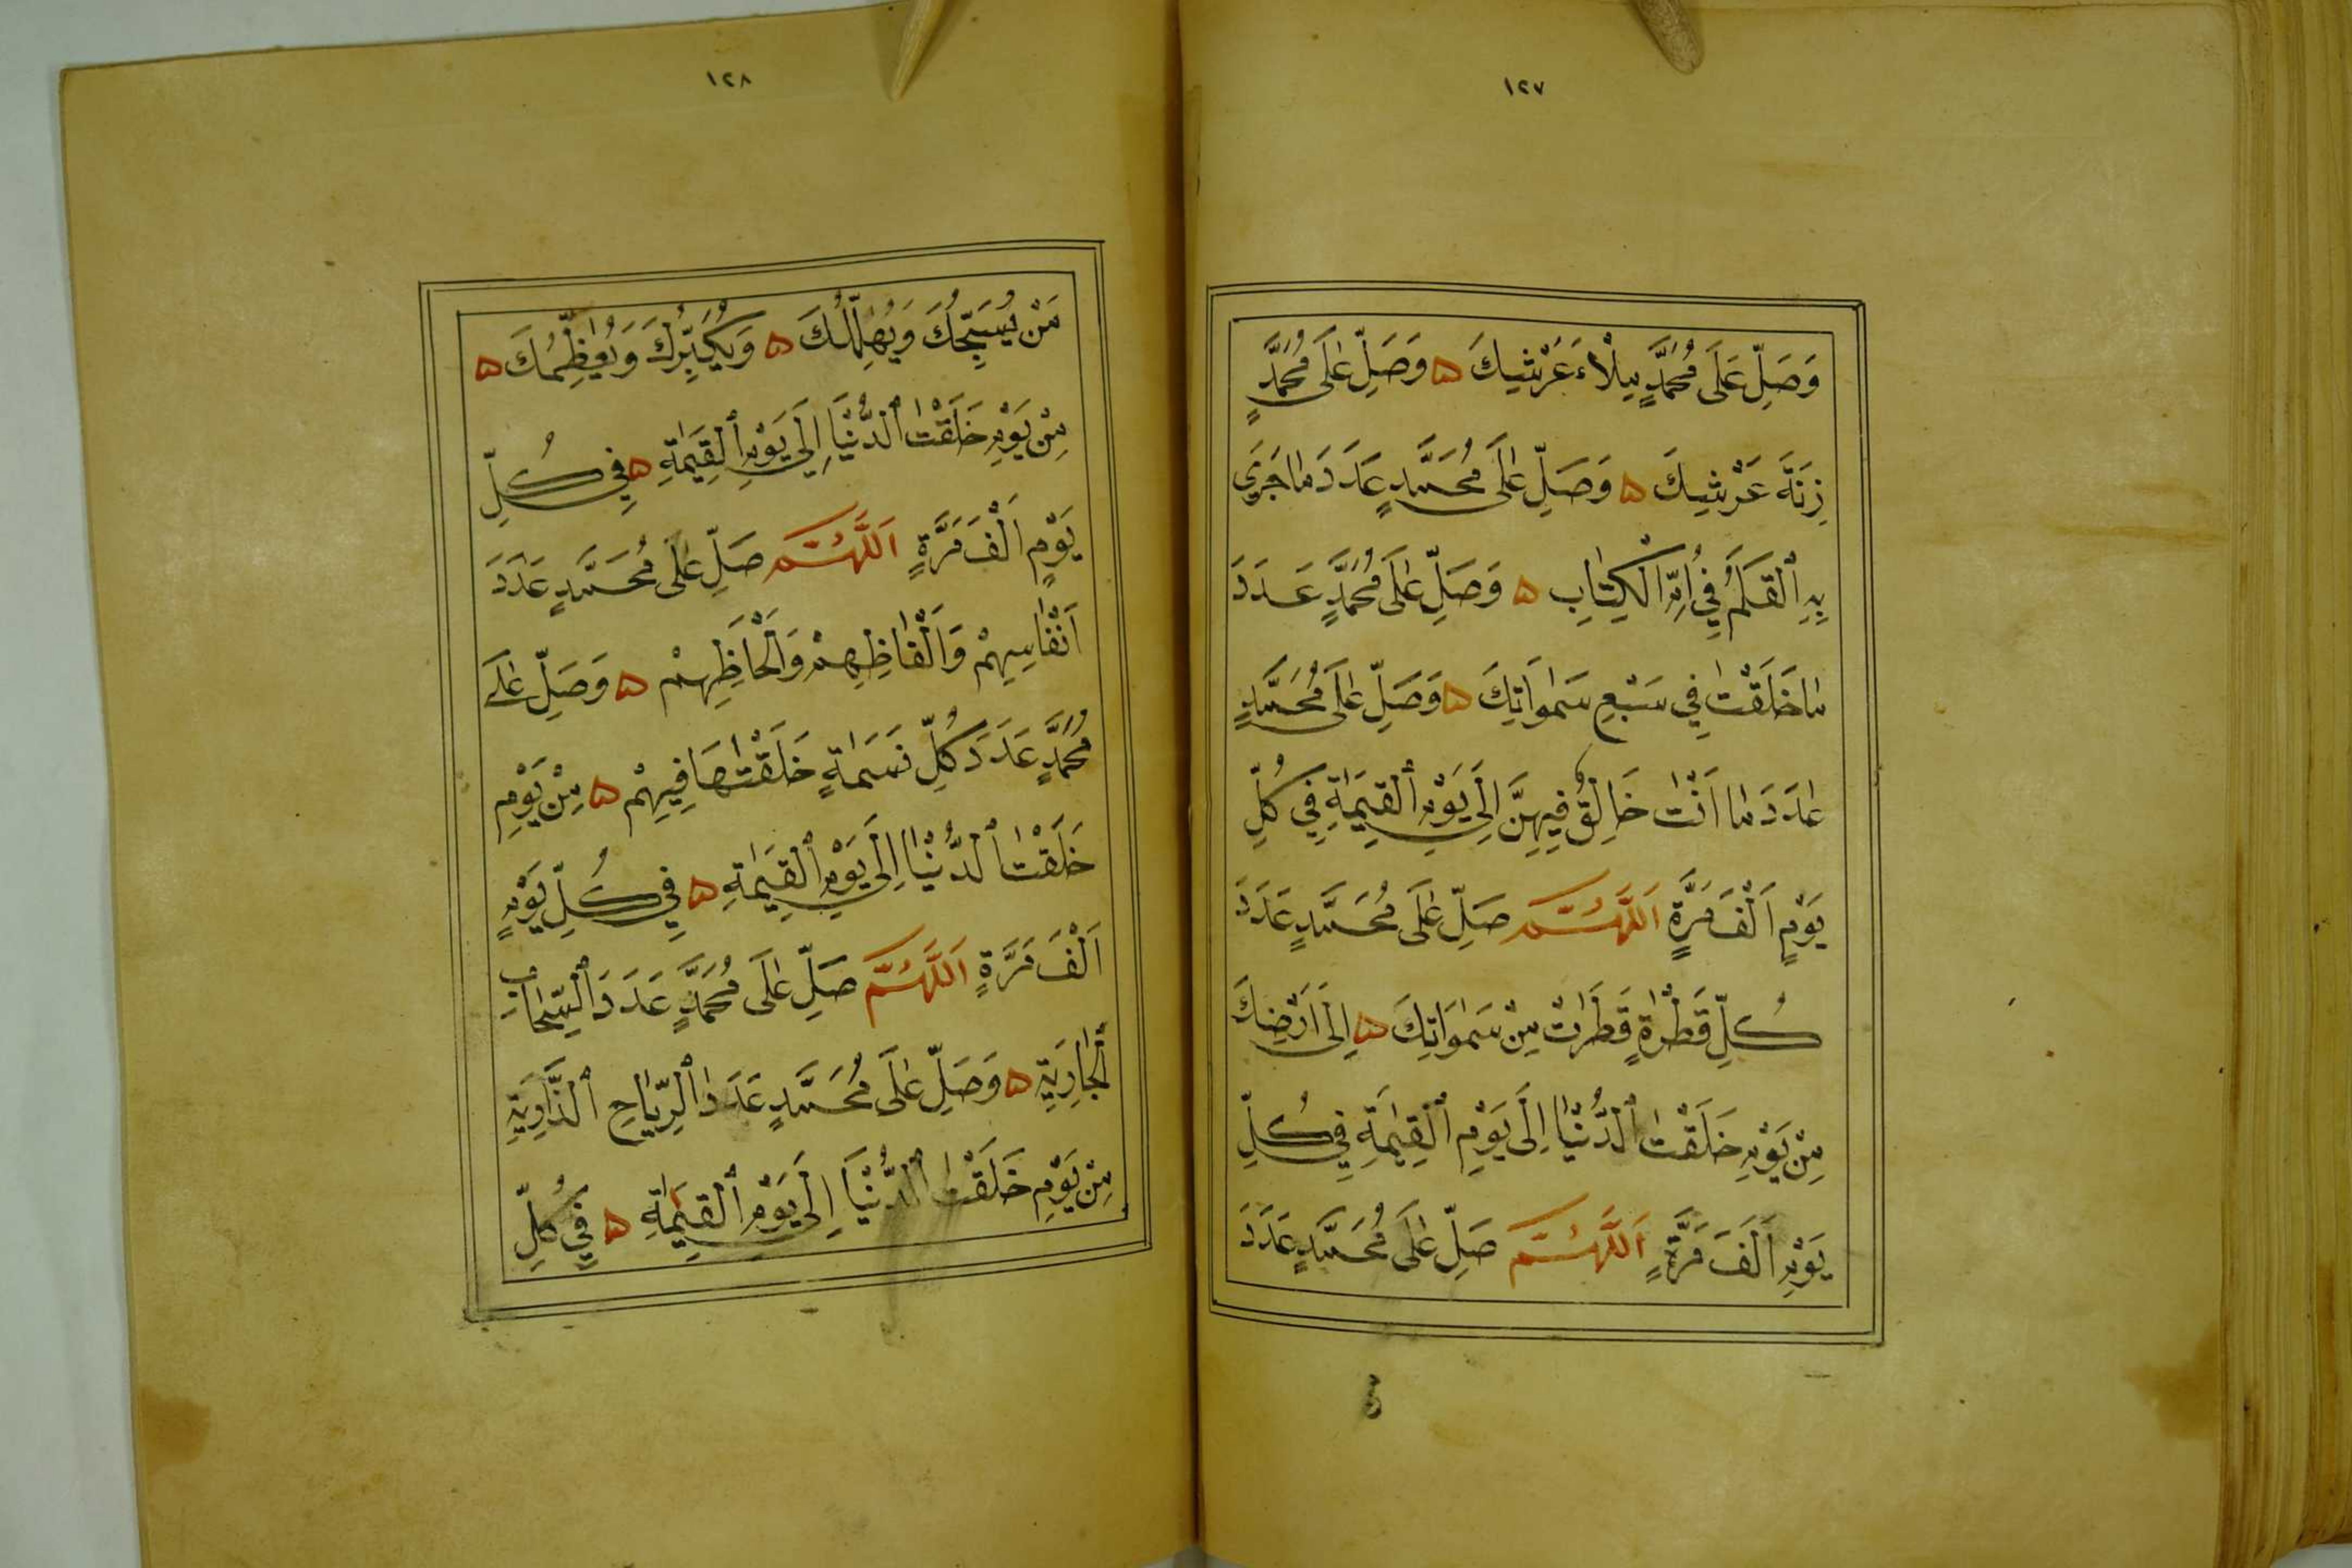 ١٢٧
وَصَلِّ عَلَى مُحَمَّدٍ مِلْاءَ عَرْشِكَ ۵ وَصَلِّ عَلَى مُحَمَّدٍ
زِنَةَ عَرْشِكَ ۵ وَصَلِّ عَلَى مُحَمَّدٍ عَدَدَ مَا جَرَى
بِهِ ٱلْقَلَمُ فِي اُمِّ الْكِتَابِ ۵ وَصَلِّ عَلَى مُحَمَّدٍ عَدَدَ
مَا خَلَقْتَ فِي سَبْعِ سَمٰوَاتِكَ ۵ وَصَلِّ عَلَى مُحَمَّدٍ
عَدَدَ مَا اَنْتَ خَالِقٌ فِيهِنَّ اِلَى يَوْمِ ٱلْقِيٰمَةِ فِي كُلِّ
يَوْمٍ اَلْفَ مَرَّةٍ اَللَّهُمَّ صَلِّ عَلَى مُحَمَّدٍ عَدَدَ
كُلِّ قَطْرَةٍ قَطَرَتْ مِنْ سَمٰوَاتِكَ ۵ اِلَى اَرْضِكَ
مِنْ يَوْمِ خَلَقْتَ ٱلدُّنْيَا اِلَى يَوْمِ ٱلْقِيٰمَةِ فِي كُلِّ
يَوْمٍ اَلْفَ مَرَّةٍ اَللَّهُمَّ صَلِّ عَلَى مُحَمَّدٍ عَدَدَ
١٢٨
مَنْ يُسَبِّحُكَ وَيُهَلِّلُكَ ۵ وَيُكَبِّرُكَ وَيُعَظِّمُكَ ۵
مِنْ يَوْمِ خَلَقْتَ ٱلدُّنْيَا اِلَى يَوْمِ ٱلْقِيٰمَةِ ۵ فِي كُلِّ
يَوْمٍ اَلْفَ مَرَّةٍ اَللَّهُمَّ صَلِّ عَلَى مُحَمَّدٍ عَدَدَ
اَنْفَاسِهِمْ وَاَلْفَاظِهِمْ وَاَلْحَاظِهِمْ ۵ وَصَلِّ عَلَى
مُحَمَّدٍ عَدَدَ كُلِّ نَسَمَةٍ خَلَقْتَهَا فِيهِمْ ۵ مِنْ يَوْمِ
خَلَقْتَ ٱلدُّنْيَا اِلَى يَوْمِ ٱلْقِيٰمَةِ ۵ فِي كُلِّ يَوْمٍ
اَلْفَ مَرَّةٍ اَللَّهُمَّ صَلِّ عَلَى مُحَمَّدٍ عَدَدَ ٱلسَّحَابِ
ٱلْجَارِيَةِ ۵ وَصَلِّ عَلَى مُحَمَّدٍ عَدَدَ ٱلرِّيَاحِ ٱلذَّارِيَةِ
مِنْ يَوْمِ خَلَقْتَ ٱلدُّنْيَا اِلَى يَوْمِ ٱلْقِيٰمَةِ ۵ فِي كُلِّ